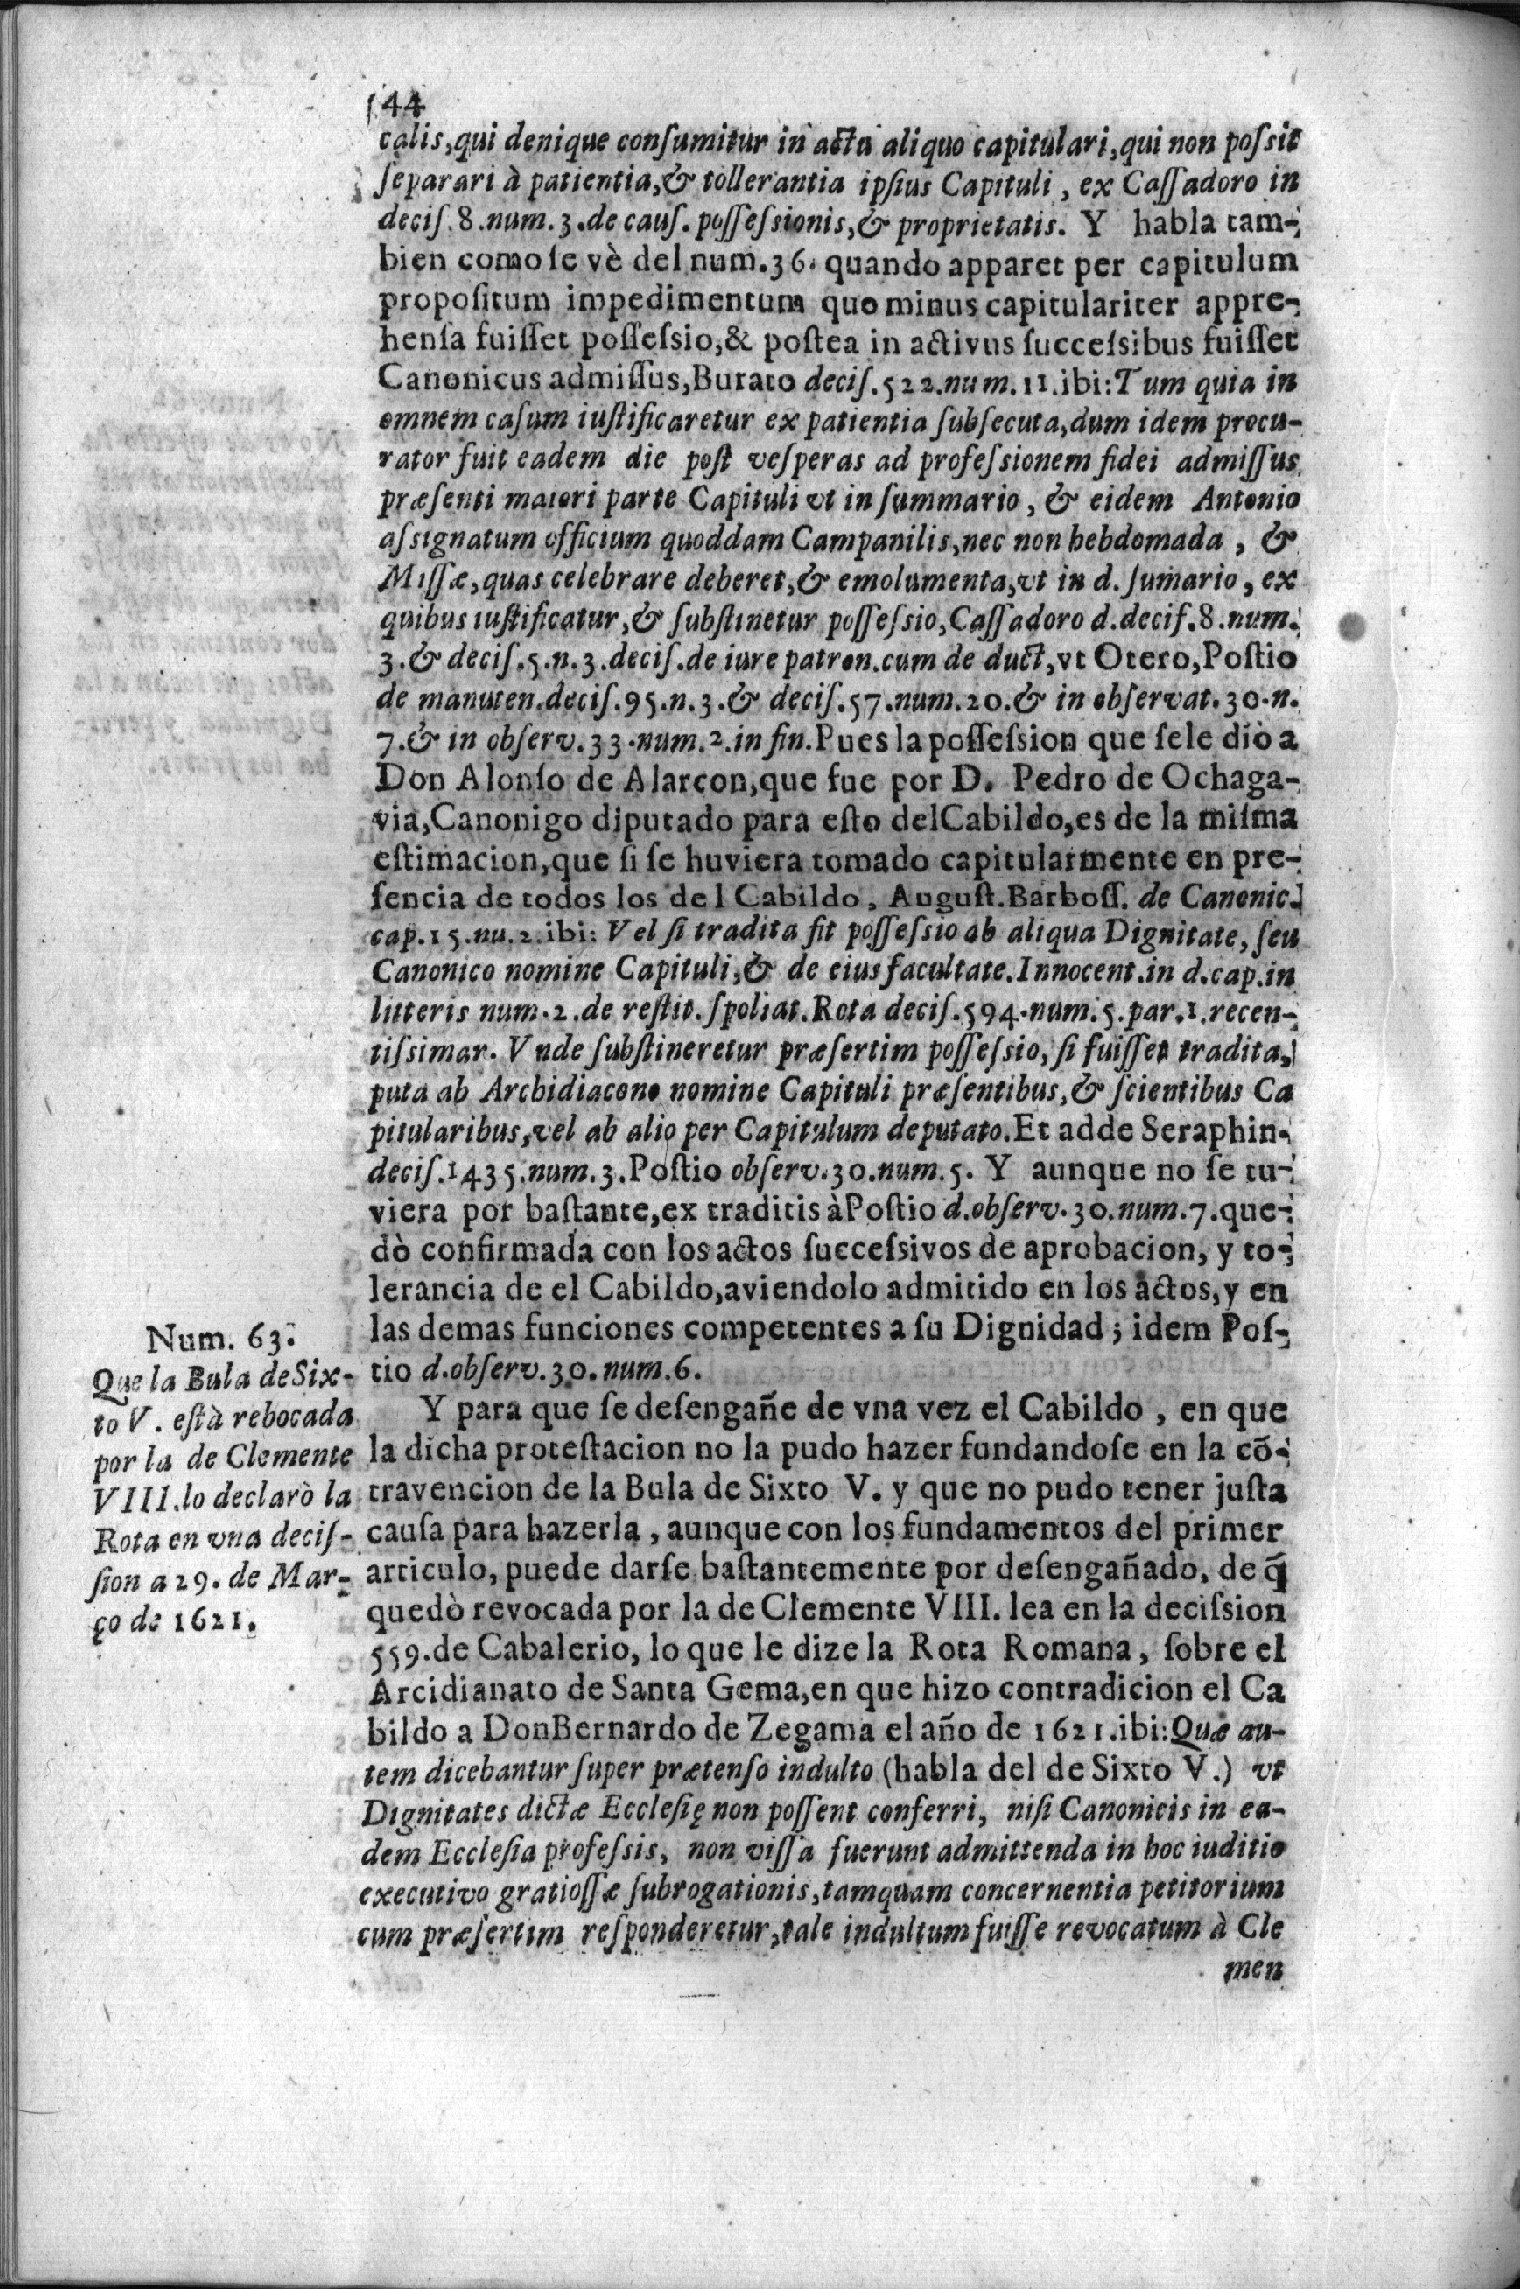 44
calis, qui denique conſumitur in actu aliquo capitulari, qui non poſsit
ſeparari à patientia, & tollerantia ipſius Capituli, ex Caſſadoro in
deciſ. 8. num. 3. de cauſ. poſſeſsionis, & proprietatis. Y habla tam-
bien como ſe vè del num. 36. quando apparet per capitulum
propoſitum impedimentum quo minus capitulariter appre-
henſa fuiſſet poſſeſsio, & poſtea in activus ſucceſsibus fuiſſet
Canonicus admiſſus, Burato deciſ. 522. num. 11. ibi: Tum quia in
omnem caſum iuſtificaretur ex patientia ſubſecuta, dum idem procu-
rator fuit eadem die poſt veſperas ad profeſsionem fidei admiſſus
præſenti maiori parte Capituli vt in ſummario, & eidem Antonio
aſsignatum officium quoddam Campanilis, nec non hebdomada, &
Miſſæ, quas celebrare deberet, & emolumenta, vt in d. ſumario, ex
quibus iuſtificatur, & ſubſtinetur poſſeſsio, Caſſadoro d. deciſ. 8. num.
3. & deciſ. 5. n. 3. deciſ. de iure patron. cum de duct, vt Otero, Poſtio
de manuten. deciſ. 95. n. 3. & deciſ. 57. num. 20. & in obſervat. 30. n.
7. & in obſerv. 33. num. 2. in fin. Pues la poſſeſsion que ſele diò a
Don Alonſo de Alarcon, que fue por D. Pedro de Ochaga-
via, Canonigo diputado para eſto del Cabildo, es de la miſma
eſtimacion, que ſi ſe huviera tomado capitularmente en pre-
ſencia de todos los del Cabildo, Auguſt. Barboſſ. de Canonic.
cap. 15. nu. 2. ibi: Vel ſi tradita ſit poſſeſsio ab aliqua Dignitate, ſeu
Canonico nomine Capituli, & de eius facultate. Innocent. in d. cap. in
litteris num. 2. de reſtit. ſpoliat. Rota deciſ. 594. num. 5. par. 1. recen-
tiſsimar. Vnde ſubſtineretur præſertim poſſeſsio, ſi fuiſſet tradita,
puta ab Archidiacono nomine Capituli præſentibus, & ſcientibus Ca
pitularibus, vel ab alio per Capitulum deputato. Et adde Seraphin.
deciſ. 1435. num. 3. Poſtio obſerv. 30. num. 5. Y aunque no ſe tu-
viera por baſtante, ex traditis à Poſtio d. obſerv. 30. num. 7. que-
dò confirmada con los actos ſucceſsivos de aprobacion, y to-
lerancia de el Cabildo, aviendolo admitido en los actos, y en
las demas funciones competentes a ſu Dignidad; idem Poſ-
tio d. obſerv. 30. num. 6.
Num. 63.
Que la Bula de Six-
to V. eſtà rebocada
por la de Clemente
VIII. lo declarò la
Rota en vna deciſ-
ſion a 29. de Mar-
ço de 1621.
Y para que ſe deſengañe de vna vez el Cabildo, en que
la dicha proteſtacion no la pudo hazer fundandoſe en la cõ-
travencion de la Bula de Sixto V. y que no pudo tener juſta
cauſa para hazerla, aunque con los fundamentos del primer
articulo, puede darſe baſtantemente por deſengañado, de q̃
quedò revocada por la de Clemente VIII. lea en la deciſsion
559. de Cabalerio, lo que le dize la Rota Romana, ſobre el
Arcidianato de Santa Gema, en que hizo contradicion el Ca
bildo a Don Bernardo de Zegama el año de 1621. ibi: Quæ au-
tem dicebantur ſuper prætenſo indulto (habla del de Sixto V.) vt
Dignitates dictæ Eccleſię non poſſent conferri, niſi Canonicis in ea-
dem Eccleſia profeſsis, non viſſa fuerunt admittenda in hoc iuditio
executivo gratioſſæ ſubrogationis, tamquam concernentia petitorium
cum præſertim reſponderetur, tale indultum fuiſſe revocatum à Cle
men